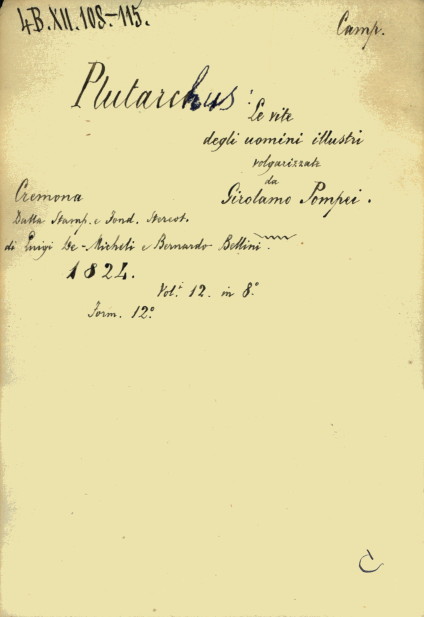 4B.XII.108-115.
Camp.
Plutarchus: Le vite
degli uomini illustri
volgarizzate
da
Girolamo Pompei.
Cremona
Dalla Stamp. e Fond. Stereot.
di Luigi De-Micheli e Bernardo Bellini.
1824.
Vol.i 12. in 8.°
Form. 12.°